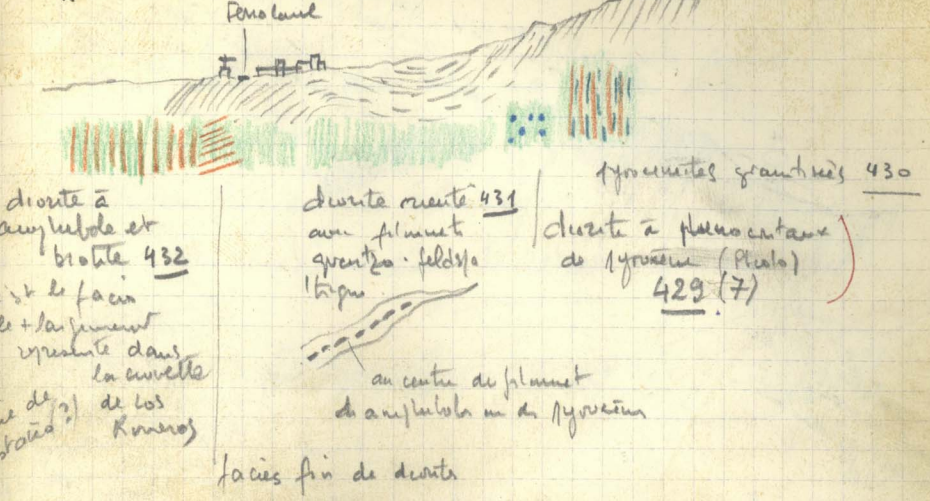 pyroxenites granitisés 430
diorite à
amphibole et
biotite 432
st le faciès
le + largement
représenté dans
la cuvette
de Los
Romeros
diorite orientée 431
avec filonnet
quartzo-feldspa
thique
au centre du filonnet
des amphiboles ou des pyroxènes
diorite à phénocristaux
de pyroxène (Photo)
429 (7)
faciès fin de diorite